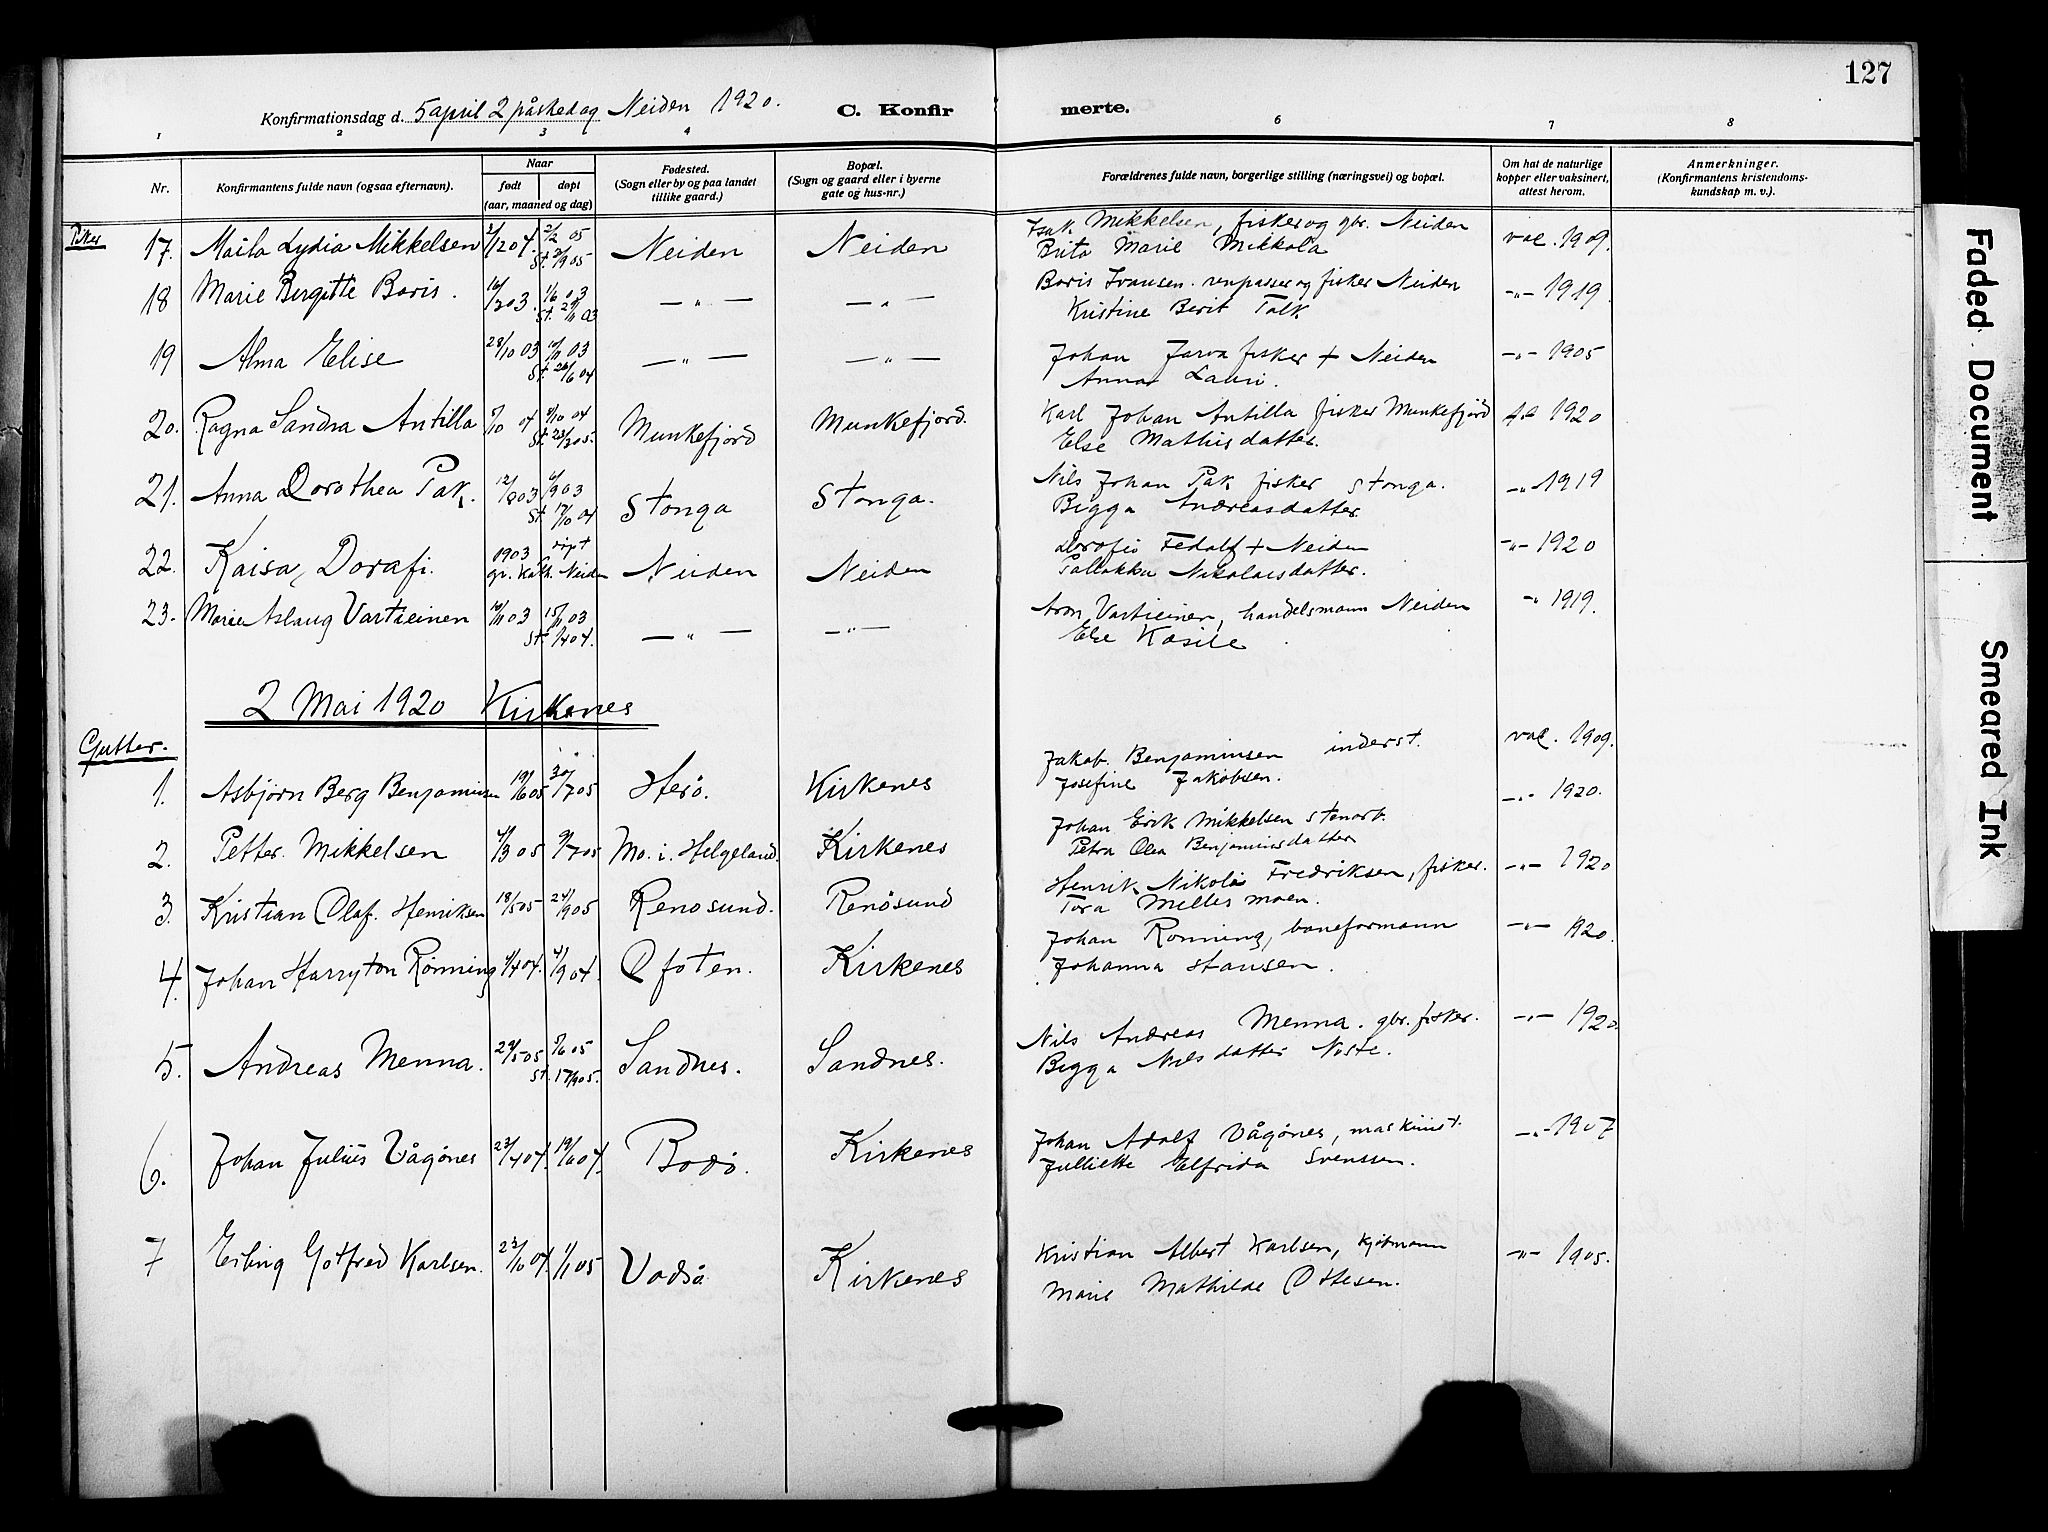 127
Konfirmationsdag d. 5 april 2 påskedag Neiden 1920. C. Konfir merte.
1 2 3 4 6 7 8
Nr. Konfirmantens fulde navn (ogsaa efternavn). Naar født døpt (aar, maaned og dag) Fødested. (Sogn eller by og paa landet tillike gaard.) Bopæl. (Sogn og gaard eller i byerne gate og hus-nr.) Forældrenes fulde navn, borgerlige stilling (næringsvei) og bopæl. Om hat de naturlige kopper eller vaksinert, attest herom. Anmerkninger. (Konfirmantens kristendoms-kundskap m. v.).
Piker
17. Maila Lydia Mikkelsen 2/12 04. 2/2 05 Neiden Neiden Isak Mikkelsen, fisker og gbr. Neiden vac. 1909.
St. 2/9 05 Brita Marie Mikkola
18 Marie Bergitte Boris. 16/2 03. 1/6 03 —„— —„— Boris Ivansen. renpasser og fisker Neiden —„— 1919
St. 29/11 03 Kristine Berit Talk
19 Alma Elise 28/10 03 10/11 03 —„— —„— Johan Jarva fisker + Neiden —„— 1905
St. 26/6 04 Anna Lauri.
20. Ragna Sandra Antilla 5/10 04 9/10 04 Munkefjord Munkefjord. Karl Johan Antilla fisker Munkefjord 1920
St. 23/2 05. Else Mathisdatter.
21. Anna Dorothea Pak. 12/8 03 6/9 03 Stonga Stonga. Nils Johan Pak fisker Stonga. —„— 1919
St. 17/10 04 Bigga Andreasdatter
22. Kaisa, Dorafi. 1903 døpt Neiden Neiden Dorofis Fedalf + Neiden —„— 1920
gr. kath. Neiden Nikolaisdatter.
23. Marie Aslaug Vartieinen 10/11 03 15/11 03 —„— —„— Aron Vartieinen, handelsmann Neiden „ 1919.
St. 1/4 04. Else Kasile
2 Mai 1920 Kirkenes
Gutter.
1. Asbjørn Berg Benjaminsen 19/6 05 30/7 05 Herö. Kirkenes Jakob Benjaminsen inderst. vac. 1909.
Josefine Jakobsen.
2. Petter Mikkelsen 4/3 05 9/7 05 Mo. i. Helgeland. Kirkenes Johan Erik Mikkelsen stenarb. —„— 1920.
Petra Olea Benjaminsdatter
3. Kristian Olaf. Henriksen 18/5 05 24/9 05 Renosund. Renøsund Henrik Nikolai Fredriksen, fisker. —„— 1920
Tora moen.
4. Johan Harryton Rönning 4/4 04. 4/9 04. Ofoten. Kirkenes Johan Ronning, baneformann —„— 1920.
Johanna Hansen.
5. Andreas Menna. 29/5 05 5/6 05 Sandnes. Sandnes. Nils Andreas Menna. gbr. fisker. —„— 1920
St. 17/9 05. Bigga Nilsdatter Noste.
6. Johan Julius Vågönes 23/4 04. 19/6 04. Bodö. Kirkenes Johan Adolf Vågönes, maskinist. —„— 1907
Julliette Elfrida Svenssen.
7 Erling Gotfred Karlsen. 23/10 04. 1/1 05 Vadsö Kirkenes Kristian Albert Karlsen, kjörmann —„— 1905.
Marie Mathilde Ottesen.
Faded Document
Smeared Ink